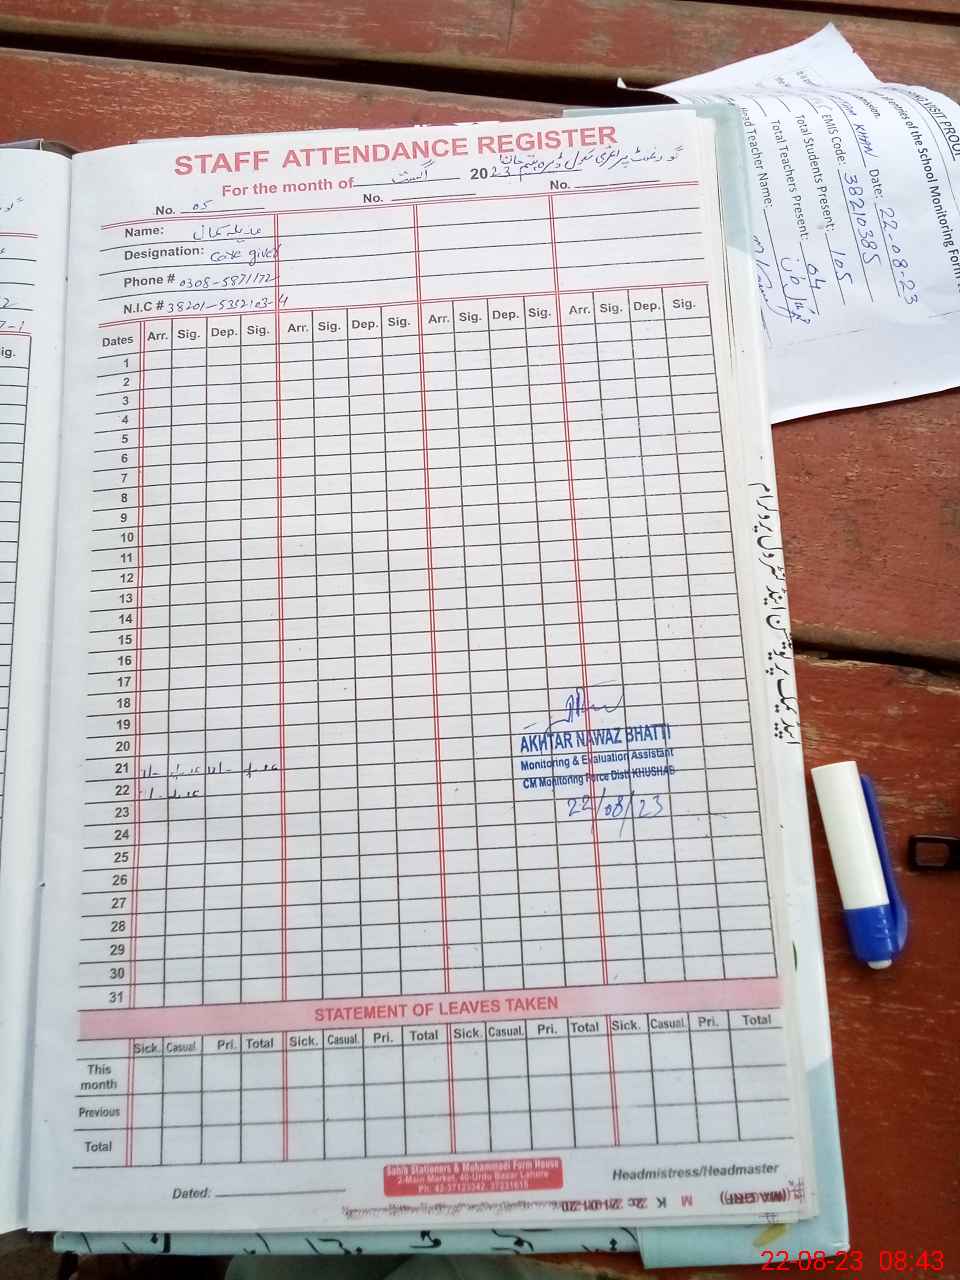 STAFF ATTENDANCE REGISTER
For the month of اگست 2023 گورنمنٹ پرائمری سکول ڈیرہ
No. 05 No. No.
Name:
Designation: Care giver
Phone # 0308-5871172
N.I.C # 38201-5352103-4
Dates Arr. Sig. Dep. Sig. Arr. Sig. Dep. Sig. Arr. Sig. Dep. Sig. Arr. Sig. Dep. Sig.
1
2
3
4
5
6
7
8
9
10
11
12
13
14
15
16
17
18
19
20
21
22
23
24
25
26
27
28
29
30
31
AKHTAR NAWAZ BHATTI
Monitoring & Evaluation Assistant
CM Monitoring Force Distt KHUSHAB
22/08/23
STATEMENT OF LEAVES TAKEN
Sick. Casual. Pri. Total Sick. Casual. Pri. Total Sick. Casual. Pri. Total Sick. Casual. Pri. Total
This month
Previous
Total
Sahib Stationers & Mohammadi Form House
2-Main Market, 40-Urdu Bazar Lahore
Ph: 42-37123342, 37231615
Dated:
Headmistress/Headmaster
VISIT PROOF
of entries of the School Monitoring Form
KHAN Date: 22-08-23
EMIS Code: 38210385
Total Students Present: 105
Total Teachers Present: 04
Head Teacher Name:
22-08-23 08:43